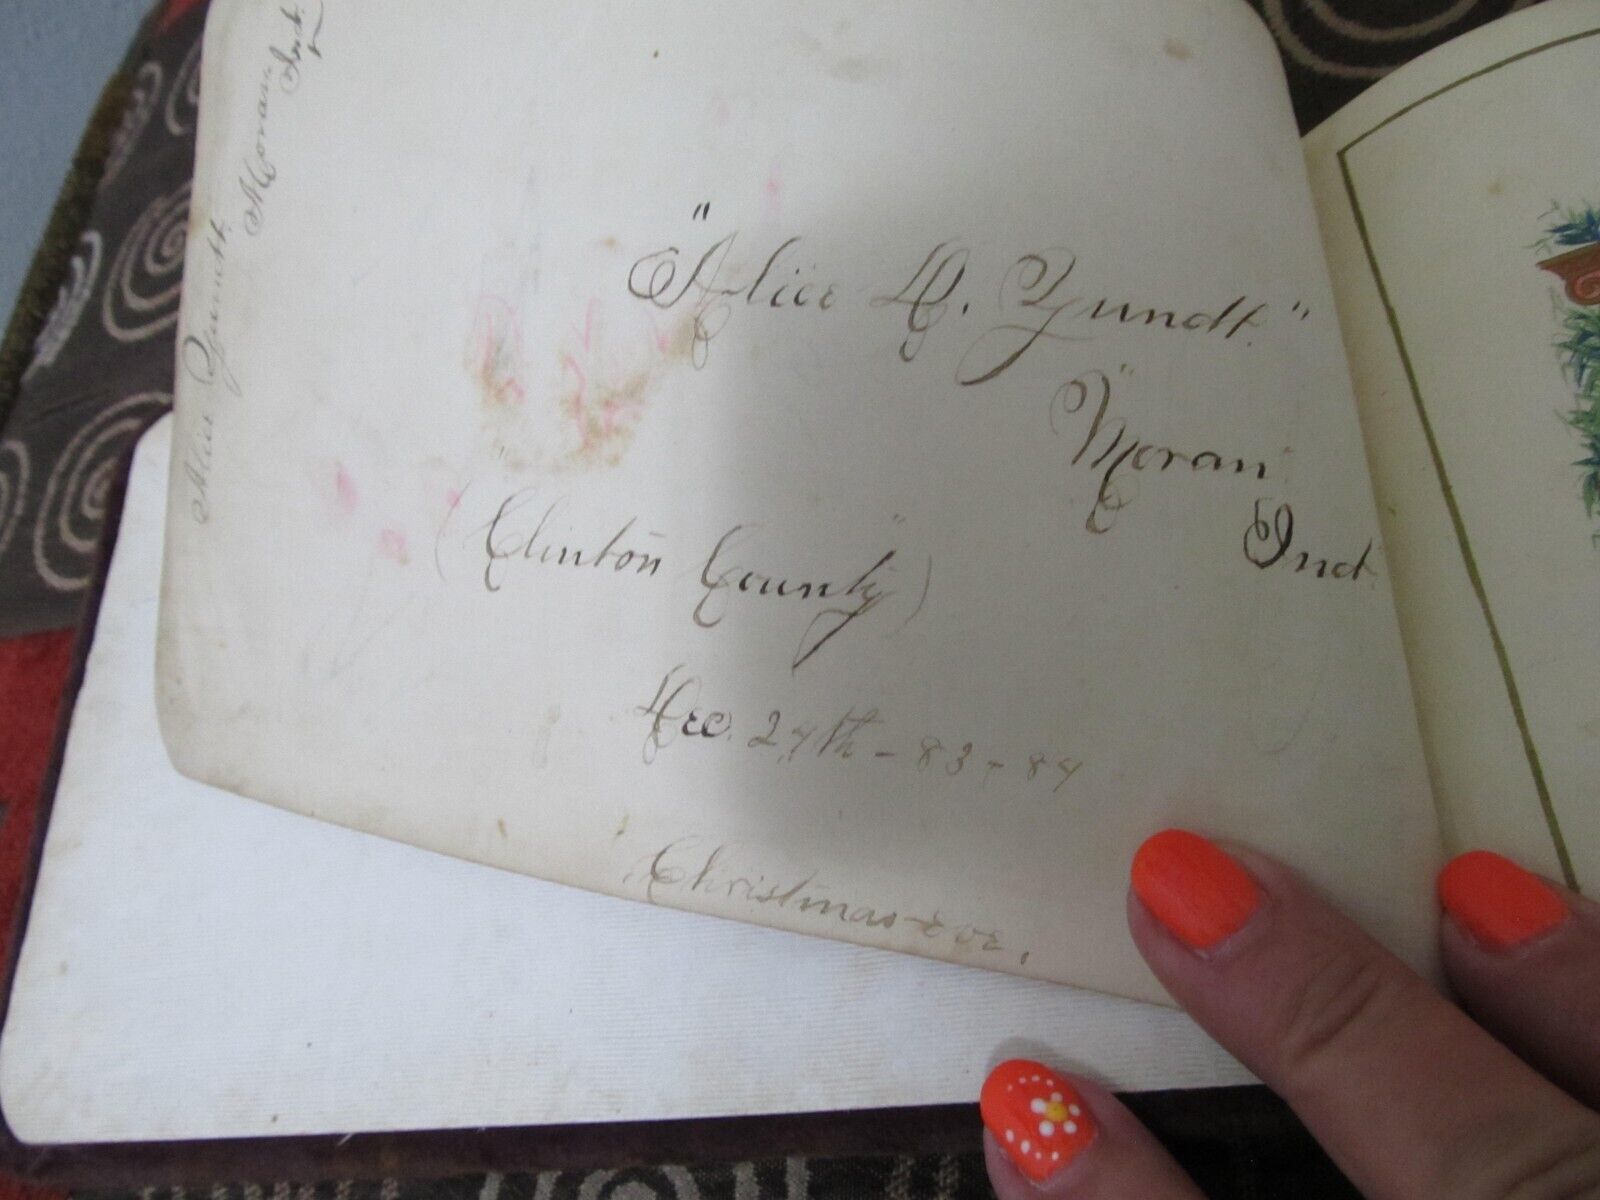 "Alice D. Zundt."
"Moran"
Ind
(Clinton County")
Dec. 24th - 83 - 84
Christmas-eve.
Alice Zundt.
Moran
Ind.